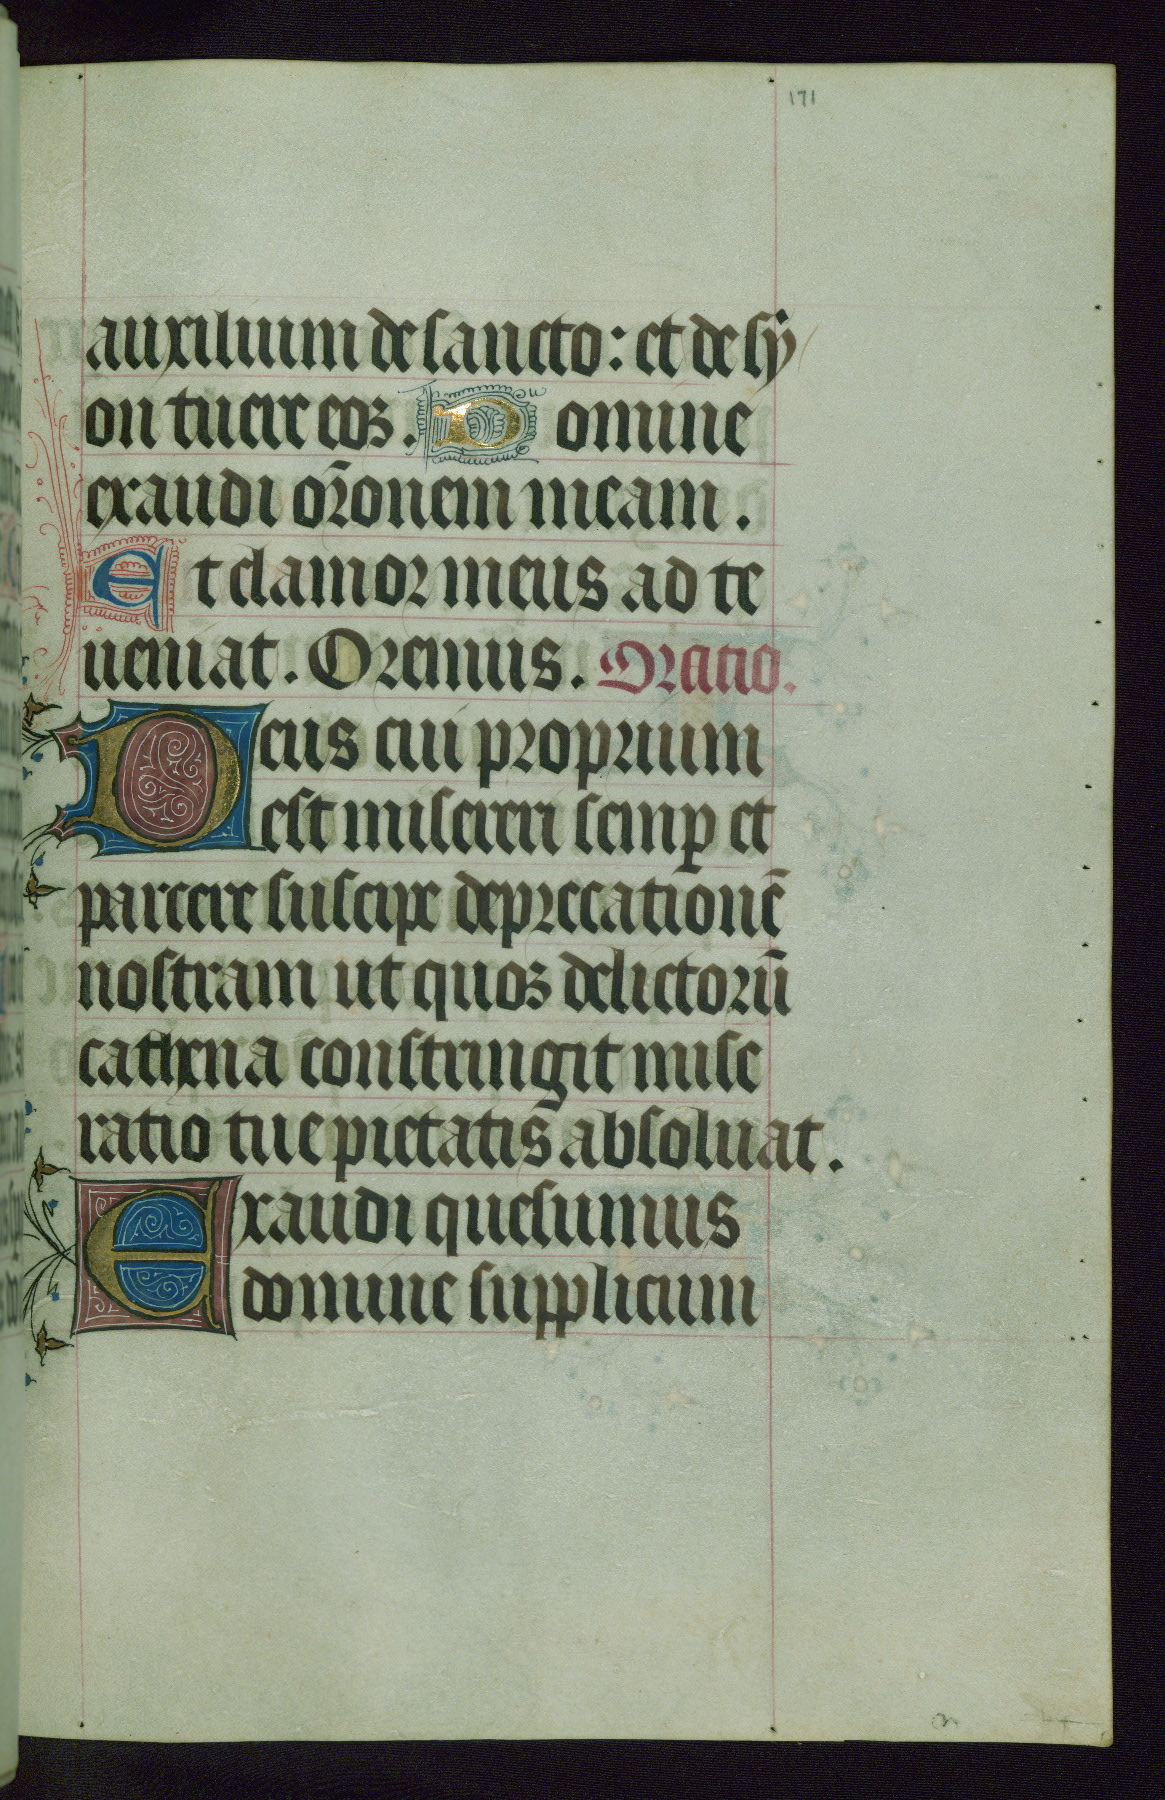 171
auxilium de sancto: et de sy
on tuere eoꝫ. Domine
exaudi or̄onem meam.
Et clamor meus ad te
ueniat. Oremus. Oratio.
Deus cui proprium
est misereri semꝑ et
parcere suscipe deprecationē
nostram ut quos delictorū
cathena constringit mise
ratio tue pietatis absoluat.
Exaudi quesumus
domine supplicum